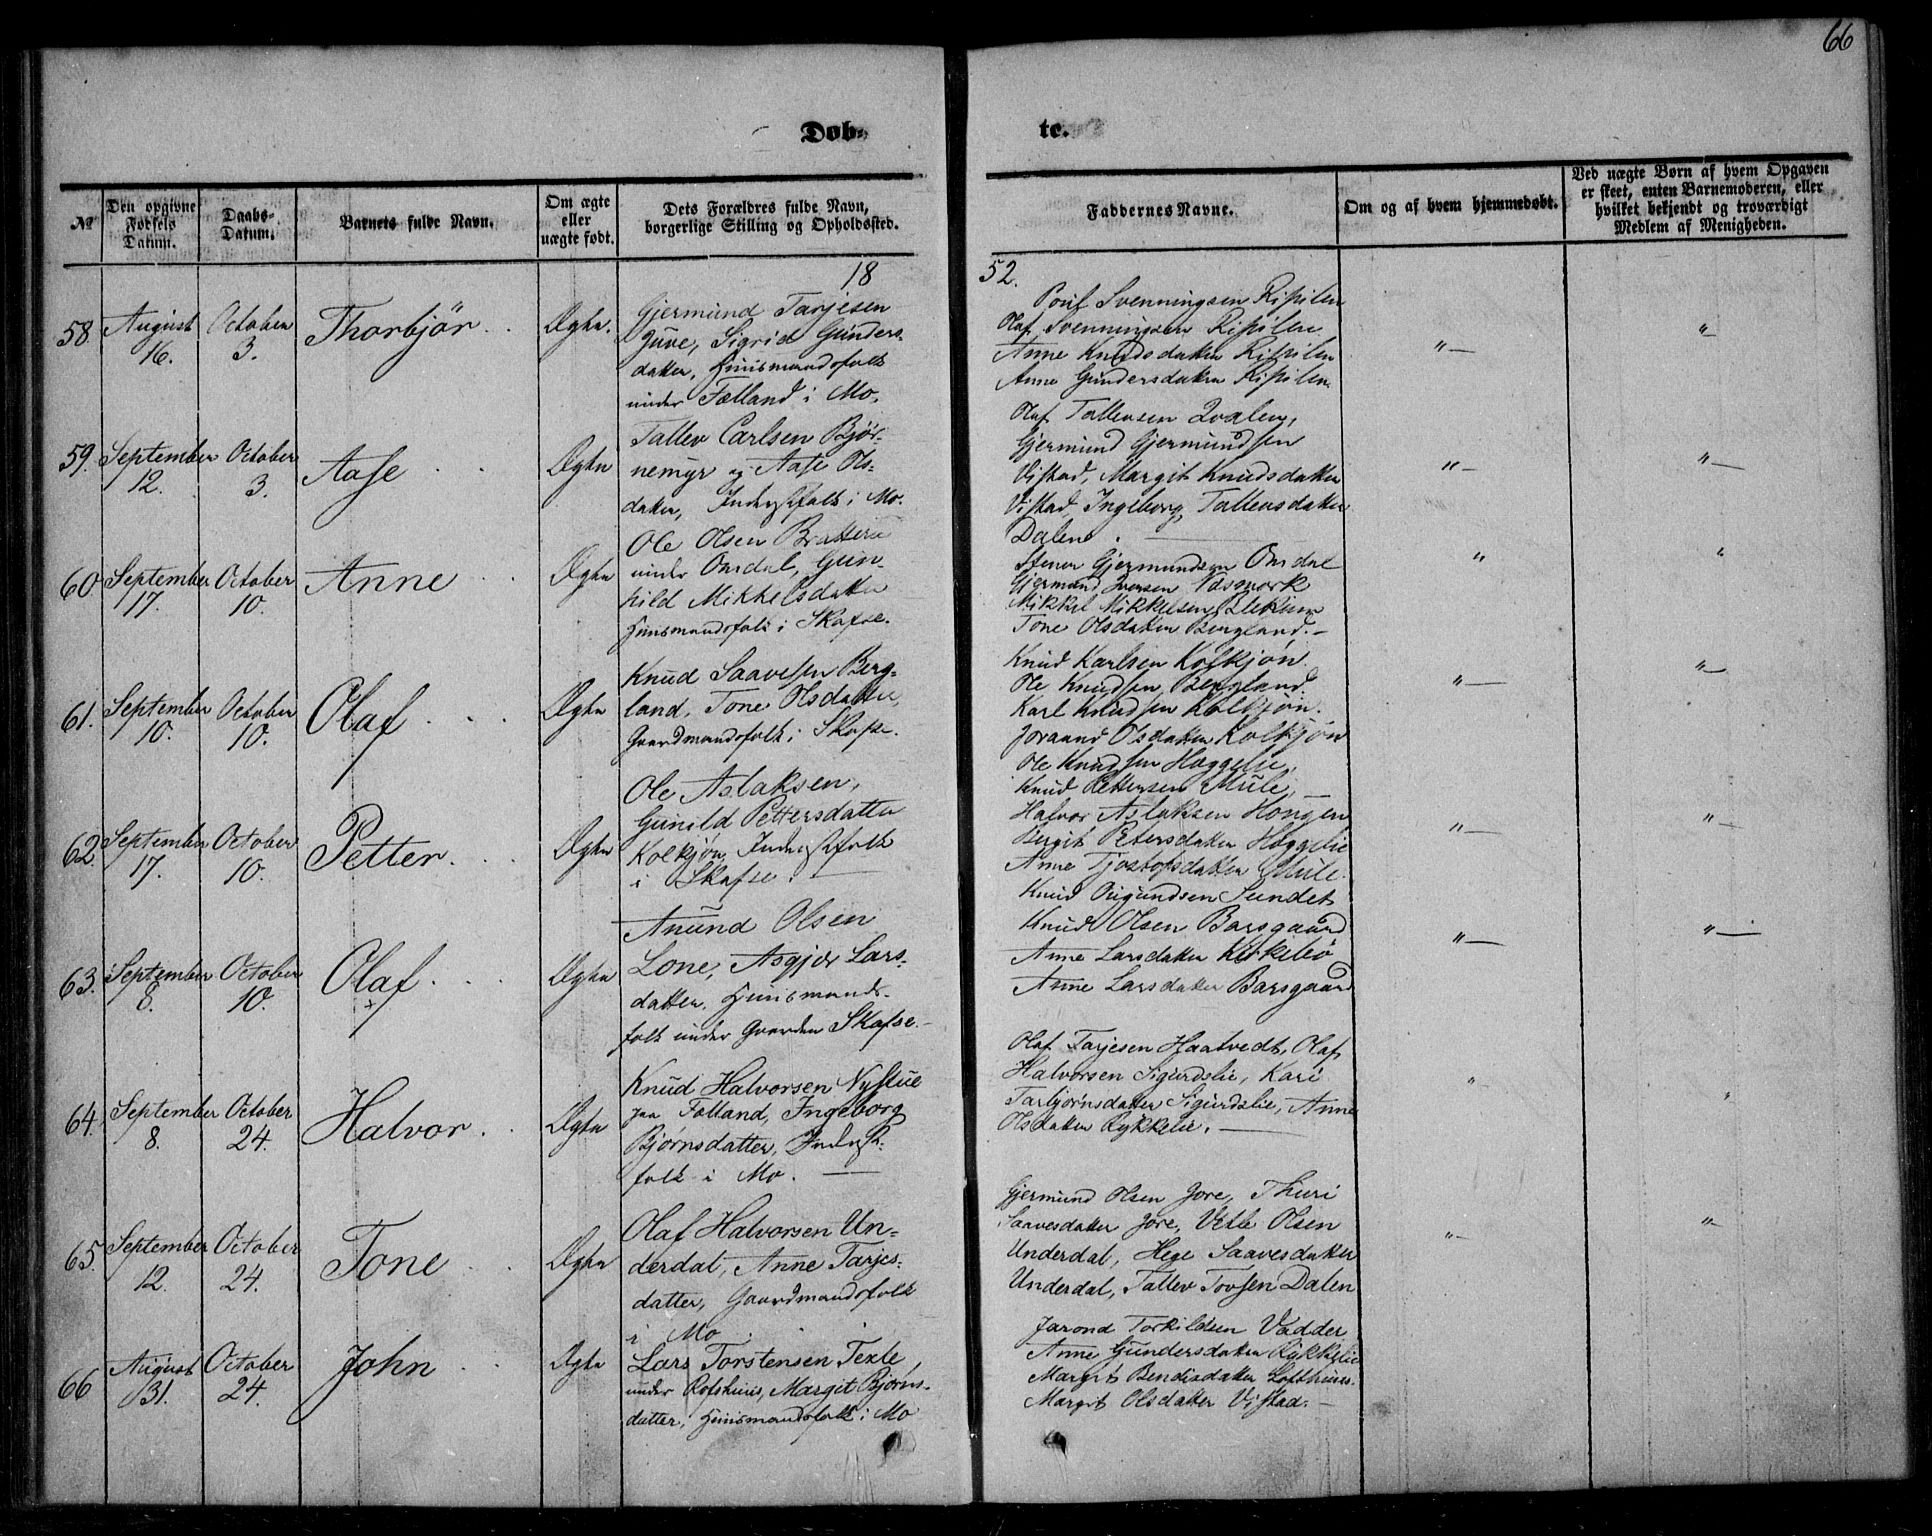 66
Døb-
te.
No
Den opgivne
Fødsels
Datum.
Daabs-
Datum.
Barnets fulde Navn.
Om ægte
eller
uægte født.
Dets Forældres fulde Navn,
borgerlige Stilling og Opholdssted.
Faddernes Navne.
Om og af hvem hjemmedøbt.
Ved uægte Børn af hvem Opgaven
er skeet, enten Barnemoderen, eller
hvilket bekjendt og troværdigt
Medlem af Menigheden.
18
52.
58.
August
16.
October
3.
Thorbjør
Ægte.
Gjermund Tarjesen
Juve, Sigrid Gunders-
datter, Huusmandsfolk
under Fælland i Mo.
Svenningsen Ripilen
Olaf Svenningsen Ripilen
Anne Knudsdatter Ripilen
Anne Gundersdatter Ripilen
"—
"
59.
September
12.
October
3.
Aase
Ægte
Tallev Carlsen Bjør-
nemyr og Aase Ols-
datter, Inderstfolk i Mo.
Olaf Tallevsen
Gjermund Gjermundsen
Vistad, Margit Knudsdatter
Vistad, Ingeborg Tallevsdatter
Dalen.
"—
"—
60
September
17.
October
10.
Anne
Ægte
Ole Olsen Bratterud
under Omdal, Gun-
hild Mikkelsdatter
Huusmandsfolk i Skafse.
Stener Gjermundsen Omdal
Gjermund Iversen Næsmork
Mikkel Mikkelsen
Tone Olsdatter Bergland.—
"
"
61.
September
10.
October
10.
Olaf
Ægte
Knud Saavesen Berg-
land, Tone Olsdatter,
Gaardmandsfolk i Skafse.
Knud Karlsen Kolkjøn.
Ole Knudsen Bergland.
Karl Knudsen Kolkjøn.
Joraand Olsdatter Kolkjøn
"—
"—
62
September
17.
October
10.
Petter.
Ægte
Ole Aslaksen,
Gunild Pettersdatter
Kolkjøn, Inderstfolk
i Skafse.
Ole Knudsen Høggelie,
Knud Pettersen Mule,
Halvor Aslaksen Hongen
Bergit Petersdatter Høggelie
Anne Tjostofsdatter Mule.
"—
"—
63.
September
8.
October
10.
Olaf
Ægte
Anund Olsen
Lone, Asgjer Lars-
datter, Huusmands-
folk under Gaarden Skafse.
Knud Sundet
Knud Olsen Barsgaard
Anne Larsdatter Kirkebø
Anne Larsdatter Barsgaard
"—
"—
64.
September
8.
October
24.
Halvor
Ægte
Knud Halvorsen Nystue
paa Følland, Ingeborg
Bjørnsdatter, Inderst-
folk i Mo.
Olaf Tarjesen Haatvedt, Olaf
Halvorsen Sigurdslie, Kari
Tarbjørnsdatter Sigurdslie, Anne
Olsdatter Rykkelie.
"
"
65.
September
12.
October
24.
Tone
Ægte
Olaf Halvorsen Un-
derdal, Anne Tarjes-
datter, Gaardmandsfolk
i Mo
Gjermund Olsen Jore, Thuri
Saavesdatter Jore, Vetle Olsen
Underdal, Hege Saavesdatter
Underdal, Tallev Tovsen Dalen
"—
"—
66
August
31.
October
24.
John
Ægte
Lars Torstensen Texle,
under Rofshuus, Margit Bjørns-
datter, Huusmandsfolk i Mo
Jarond Torkildsen Vadder
Anne Gundersdatter Rykkelie
Margit Bendixdatter Lofthuus.
Margit Olsdatter Vistad.—